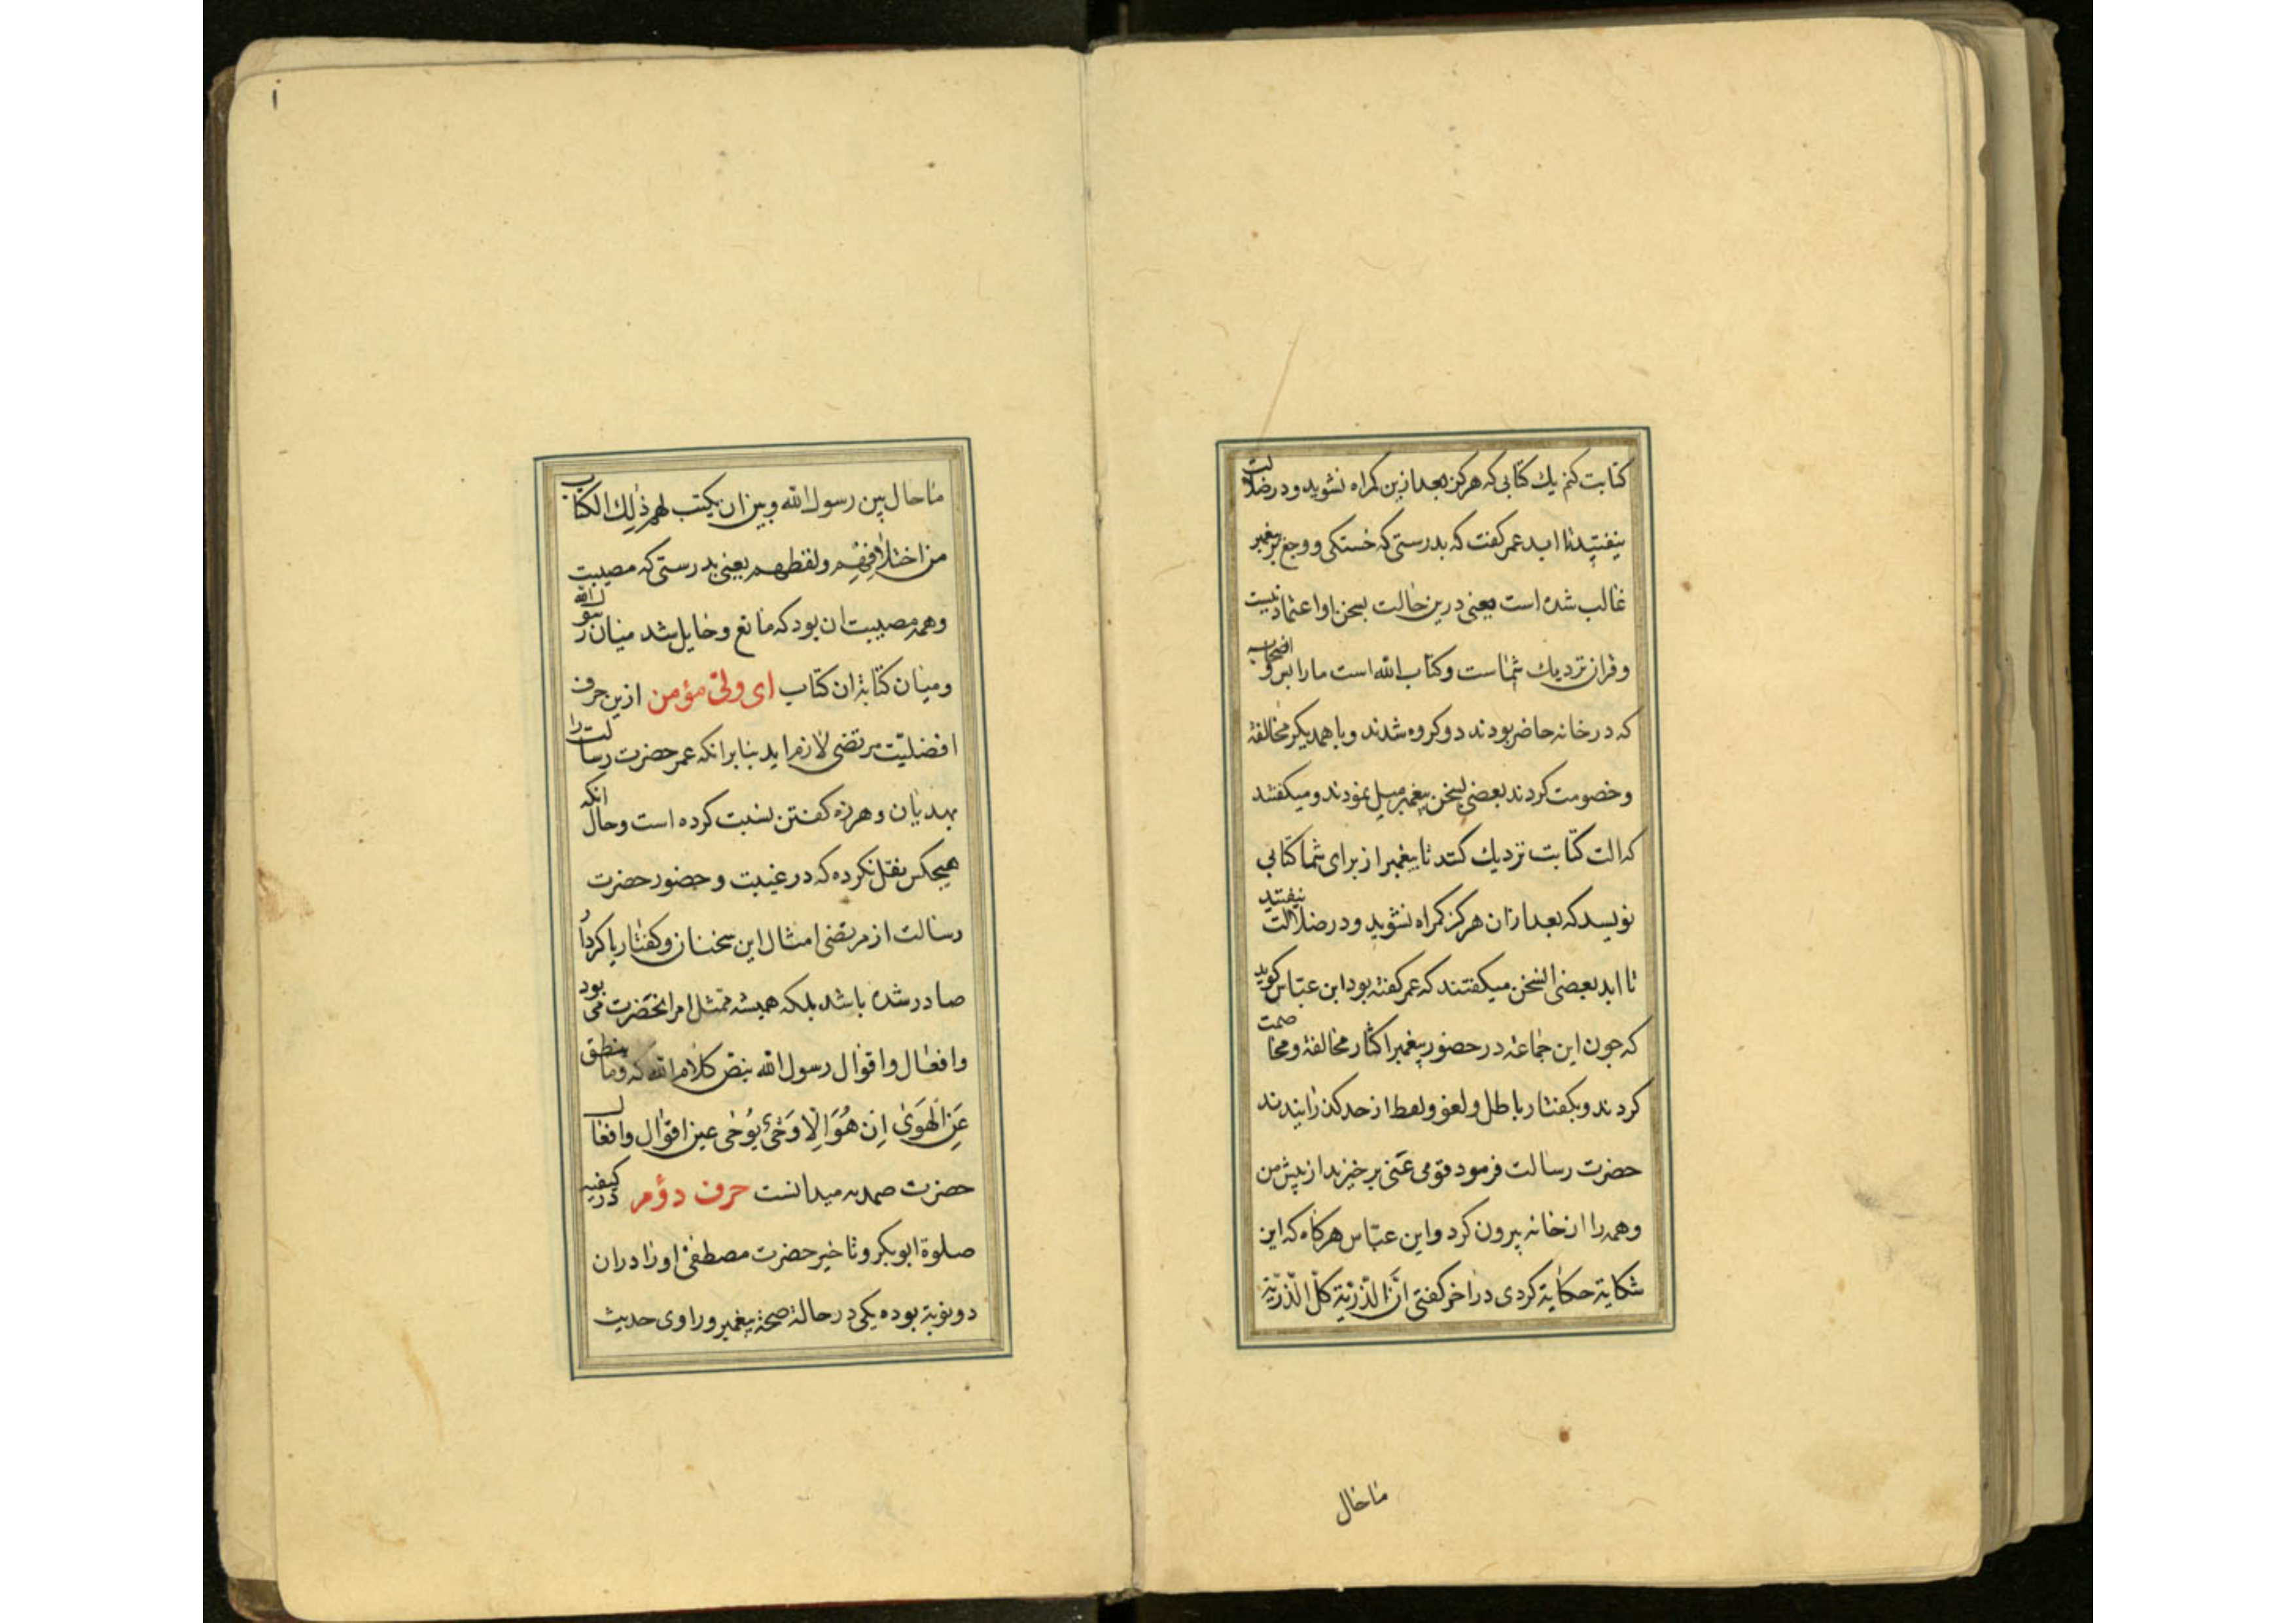 کتابت کنم یك کتابی که هرکز بعد ازین کمراه نشوید و در ضلالت
نیفتید تا ابد عمر کفت که بدرستی که خستکی و وجع بر پیغمبر
غالب شده است یعنی درین حالت بسخن او اعتماد نیست
و قران نزدیك شماست و کتاب الله است ما را بس و اصحابیه
که در خانه حاضر بودند دو کروه شدند و با همدیکر مخالفة
و خصومت کردند بعضی بسخن پیغمبر میل نمودند و میکفتند
که الت کتابت نزدیك کنید تا پیغمبر از برای شما کتابی
نویسد که بعد ازان هرکز کمراه نشوید و در ضلالت نیفتید
تا ابد بعضی السخن میکفتند که عمر کفته بود ابن عباس کوید
که جون این جماعة در حضور پیغمبر اکثار مخالفة و مخاصمت
کردند و بکفتار باطل و لغو و لغط از حد کذرانیدند
حضرت رسالت فرمود قومی عنی برخیزید از پیش من
وهمه را از خانه بیرون کرد و ابن عباس هرکاه که این
شکایة حکایة کردی در اخر کفتی ان الذریة کل الذریة
ما حال
ما حال بین رسول الله و بین ان یکتب لهم ذلك الکتاب
من اختلافهم ولغطهم یعنی بدرستی که مصیبت
وهمه مصیبت ان بود که مانع و حایل شد میان رسول الله
و میان کتابة ان کتاب ای ولی مؤمن ازین حرف
افضلیت مرتضی لازم اید بنابر انکه عمر حضرت رسالت را
بهدیان و هرزه کفتن نسبت کرده است و حال انکه
هیچکس نقل نکرده که در غیبت و حضور حضرت
رسالت از مرتضی امثال این سخنان و کفتار یا کردار
صادر شده باشد بلکه همیشه ممتثل امر انحضرت می بود
و افعال و اقوال رسول الله بنص کلام الله که وما ینطق
عَنِ الْهَوَىٰ اِنْ هُوَ اِلَّا وَحْیٌ یُوْحٰی عین اقوال و افعال
حضرت صمدیه میدانست حرف دؤم در کیفیة
صلوة ابوبکر و تاخیر حضرت مصطفی او را دران
دو نوبة بوده یکی در حالة صحة پیغمبر و راوی حدیث